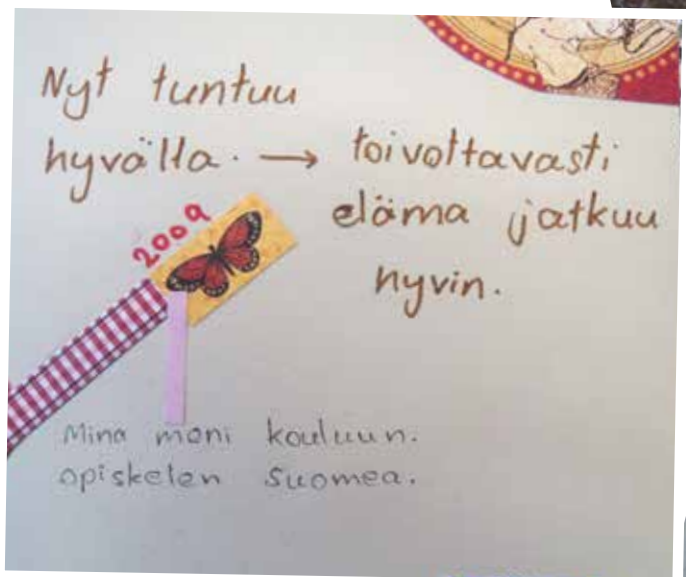 Nyt tuntuu
hyvältä. → toivottavasti
eläma jatkuu
hyvin.
2009
Mina moni kouluun.
opiskelen Suomea.